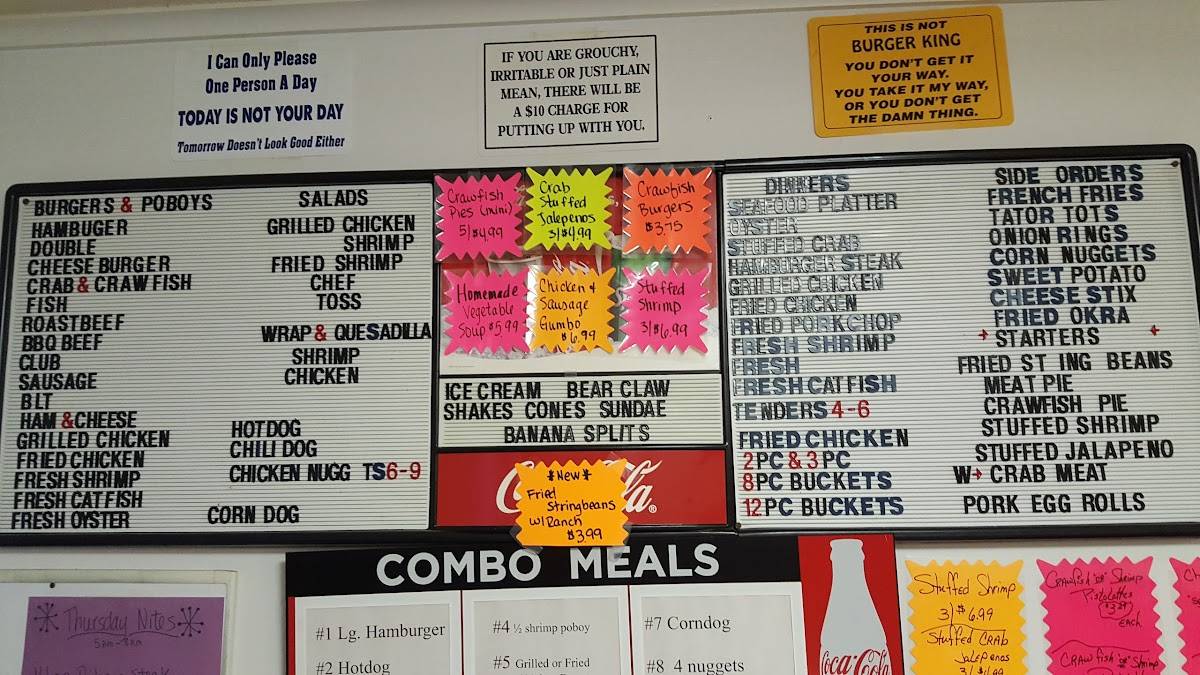 I Can Only Please
One Person A Day
TODAY IS NOT YOUR DAY
Tomorrow Doesn't Look Good Either
IF YOU ARE GROUCHY,
IRRITABLE OR JUST PLAIN
MEAN, THERE WILL BE
A $10 CHARGE FOR
PUTTING UP WITH YOU.
THIS IS NOT
BURGER KING
YOU DON'T GET IT
YOUR WAY.
YOU TAKE IT MY WAY,
OR YOU DON'T GET
THE DAMN THING.
BURGERS & POBOYS
HAMBUGER
DOUBLE
CHEESE BURGER
CRAB & CRAWFISH
FISH
ROASTBEEF
BBQ BEEF
CLUB
SAUSAGE
BLT
HAM & CHEESE
GRILLED CHICKEN
FRIED CHICKEN
FRESH SHRIMP
FRESH CATFISH
FRESH OYSTER
SALADS
GRILLED CHICKEN
SHRIMP
FRIED SHRIMP
CHEF
TOSS
WRAP & QUESADILLA
SHRIMP
CHICKEN
HOTDOG
CHILI DOG
CHICKEN NUGG TS 6-9
CORN DOG
Crawfish
Pies (mini)
5/$4.99
Crab
Stuffed
Jalepenos
3/$4.99
Crawfish
Burgers
$3.75
Homemade
Vegetable
Soup $5.99
Chicken &
Sausage
Gumbo
$6.99
Stuffed
Shrimp
3/$6.99
ICE CREAM BEAR CLAW
SHAKES CONES SUNDAE
BANANA SPLITS
*New*
Fried
Stringbeans
w/Ranch
$3.99
DINNERS
SEAFOOD PLATTER
OYSTER
STUFFED CRAB
HAMBURGER STEAK
GRILLED CHICKEN
FRIED CHICKEN
FRIED PORKCHOP
FRESH SHRIMP
FRESH
FRESH CATFISH
TENDERS 4-6
FRIED CHICKEN
2PC & 3PC
8PC BUCKETS
12PC BUCKETS
SIDE ORDERS
FRENCH FRIES
TATOR TOTS
ONION RINGS
CORN NUGGETS
SWEET POTATO
CHEESE STIX
FRIED OKRA
STARTERS
FRIED ST ING BEANS
MEAT PIE
CRAWFISH PIE
STUFFED SHRIMP
STUFFED JALAPENO
W→ CRAB MEAT
PORK EGG ROLLS
COMBO MEALS
#1 Lg. Hamburger
#2 Hotdog
#4 ½ shrimp poboy
#5 Grilled or Fried
#7 Corndog
#8 4 nuggets
Coca-Cola
Thursday Nites
5pm-8pm
Stuffed Shrimp
3/$6.99
Stuffed CRAB
Jalepenos
CRAWfish "or" Shrimp
Pistolettes
EACH
CRAWfish "or" Shrimp